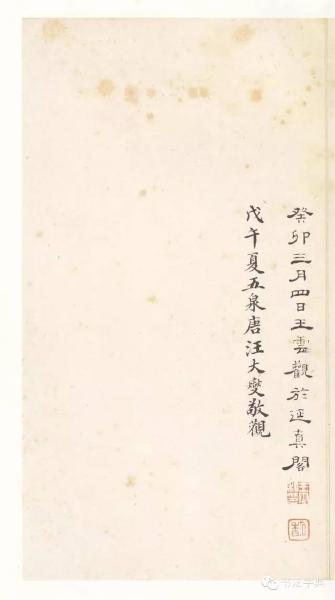 癸卯三月四日王雲觀於延真閣
戊午夏五泉唐汪大燮敬觀
书法字典